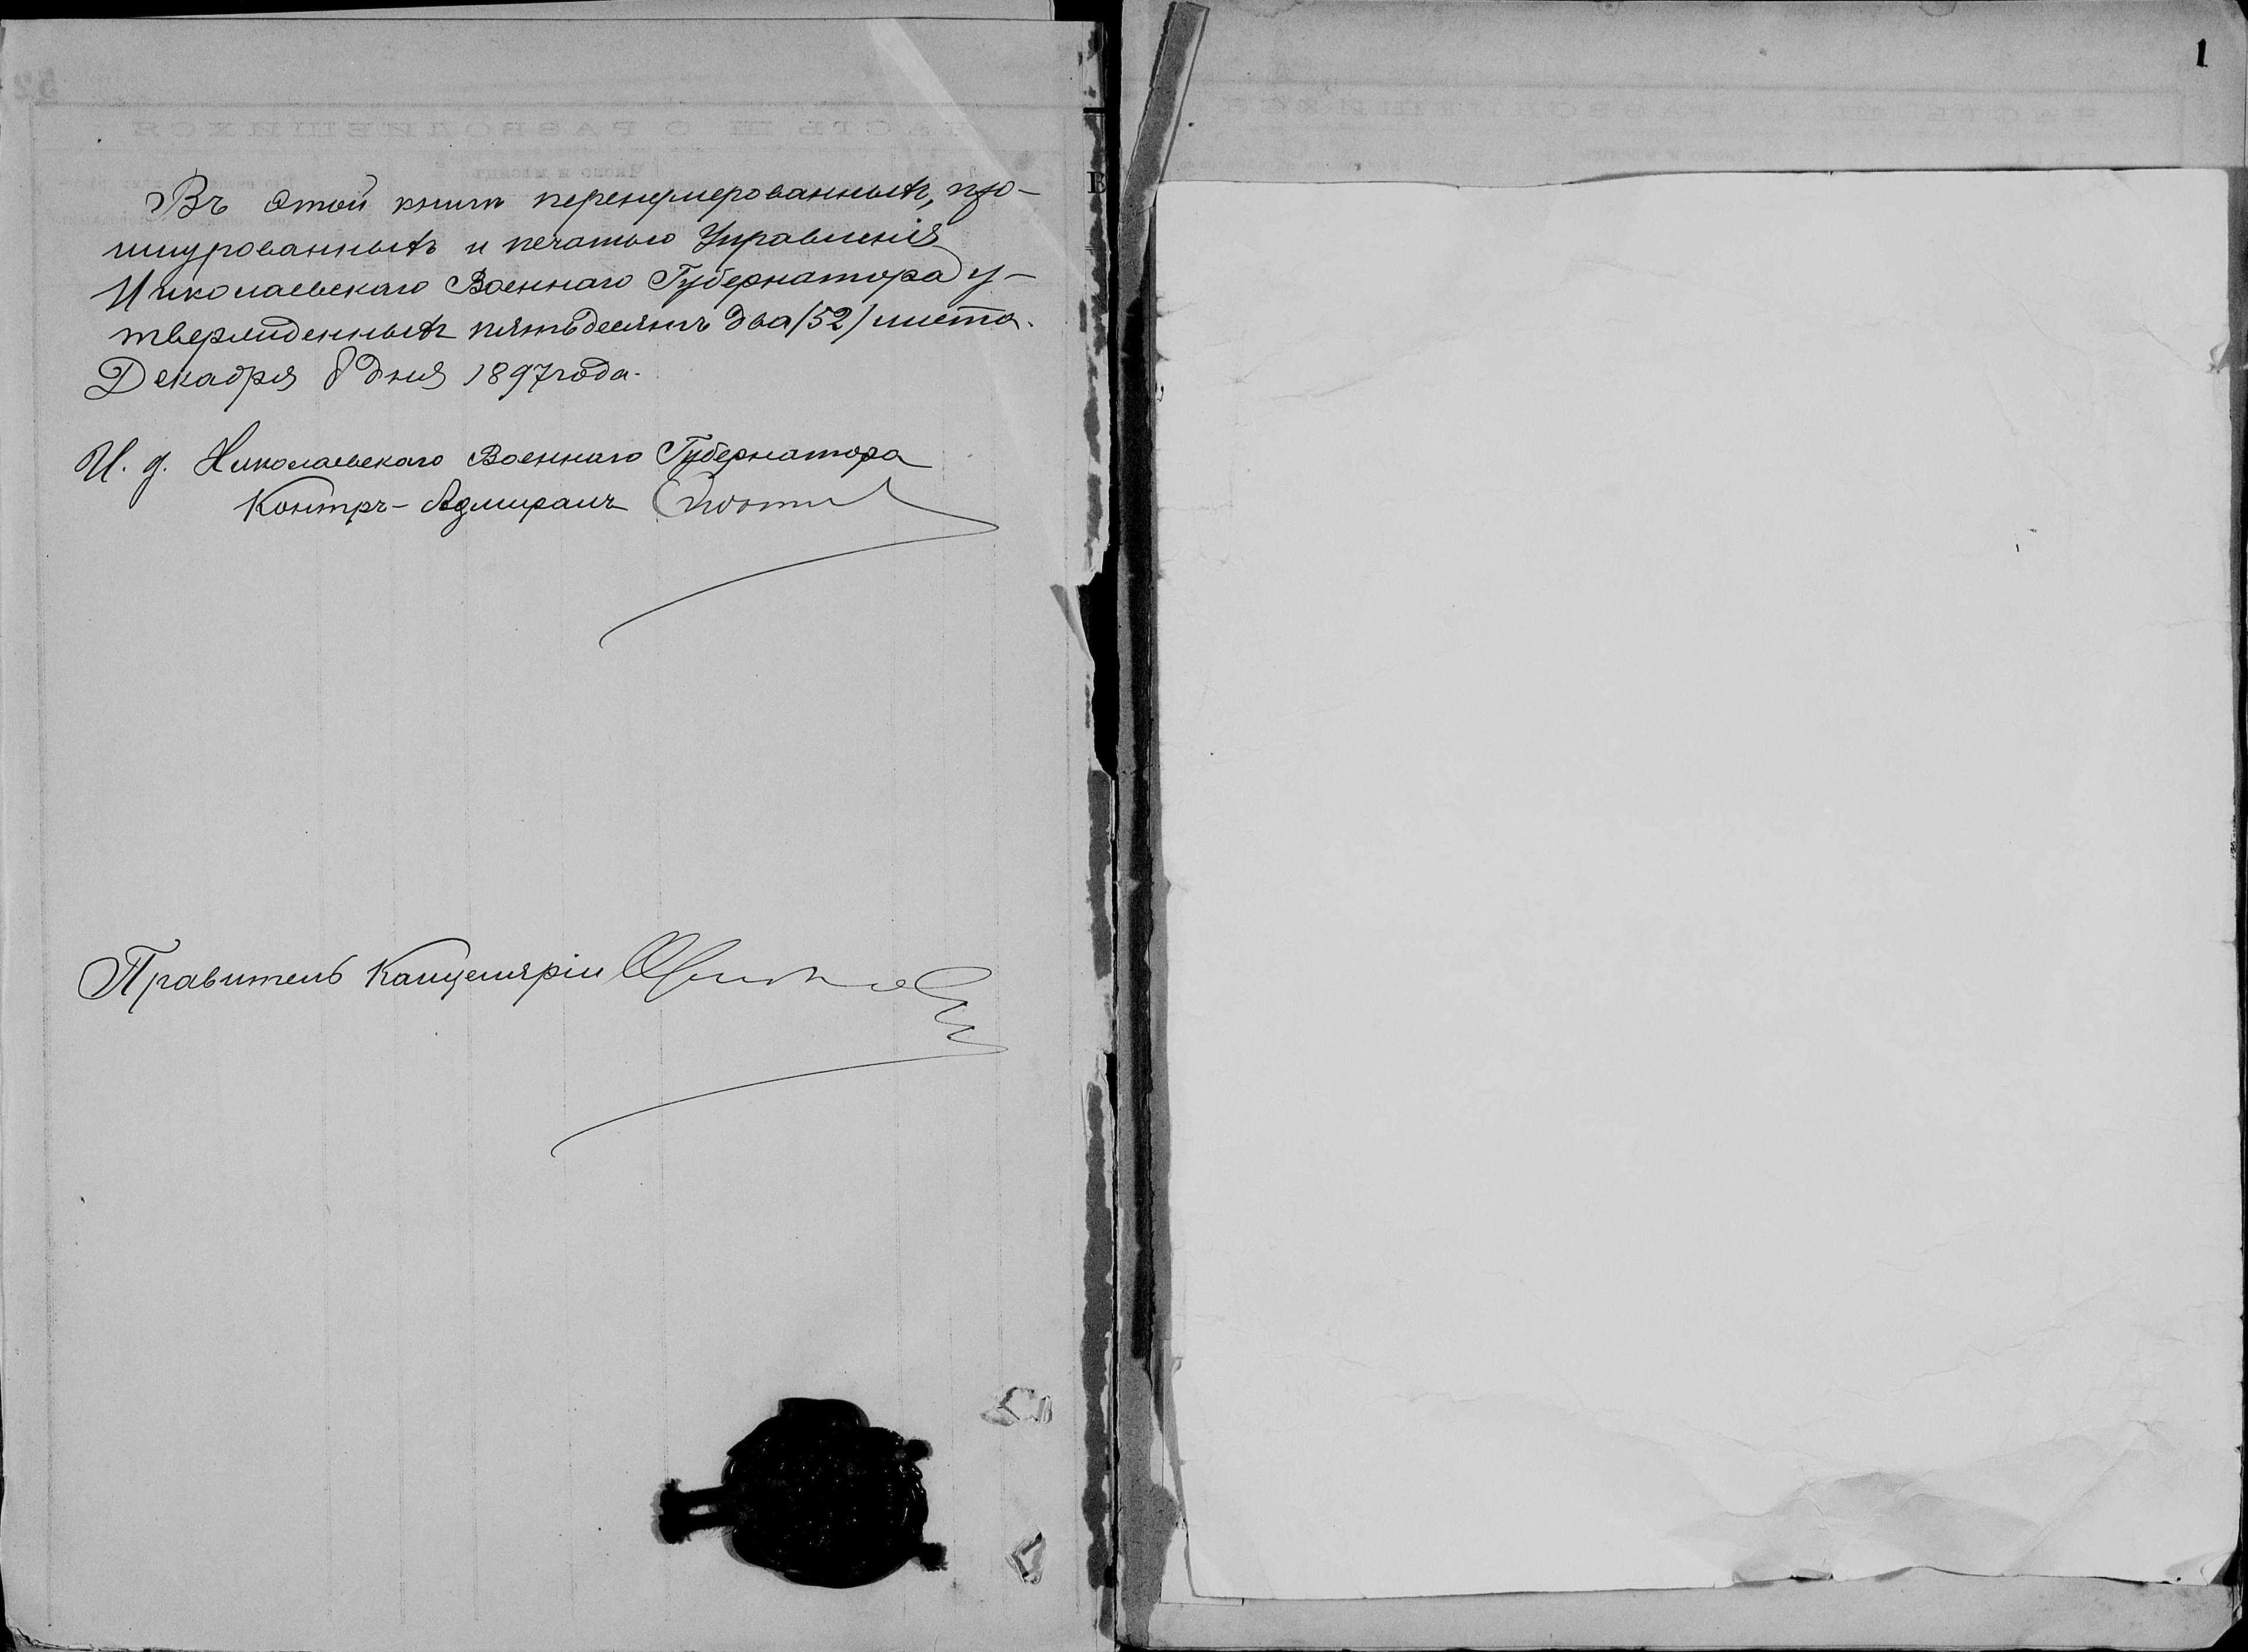 Въ этой книгѣ перенумерованныхъ, про-
шнурованныхъ и печатью Управленія
Николаевскаго Военнаго Губернатора у-
твержденныхъ пятьдесятъ два /52/ листа.
Декабря 8 дня 1897 года.
И. д. Николаевскаго Военнаго Губернатора
Контръ-Адмиралъ
Правитель Канцеляріи
1